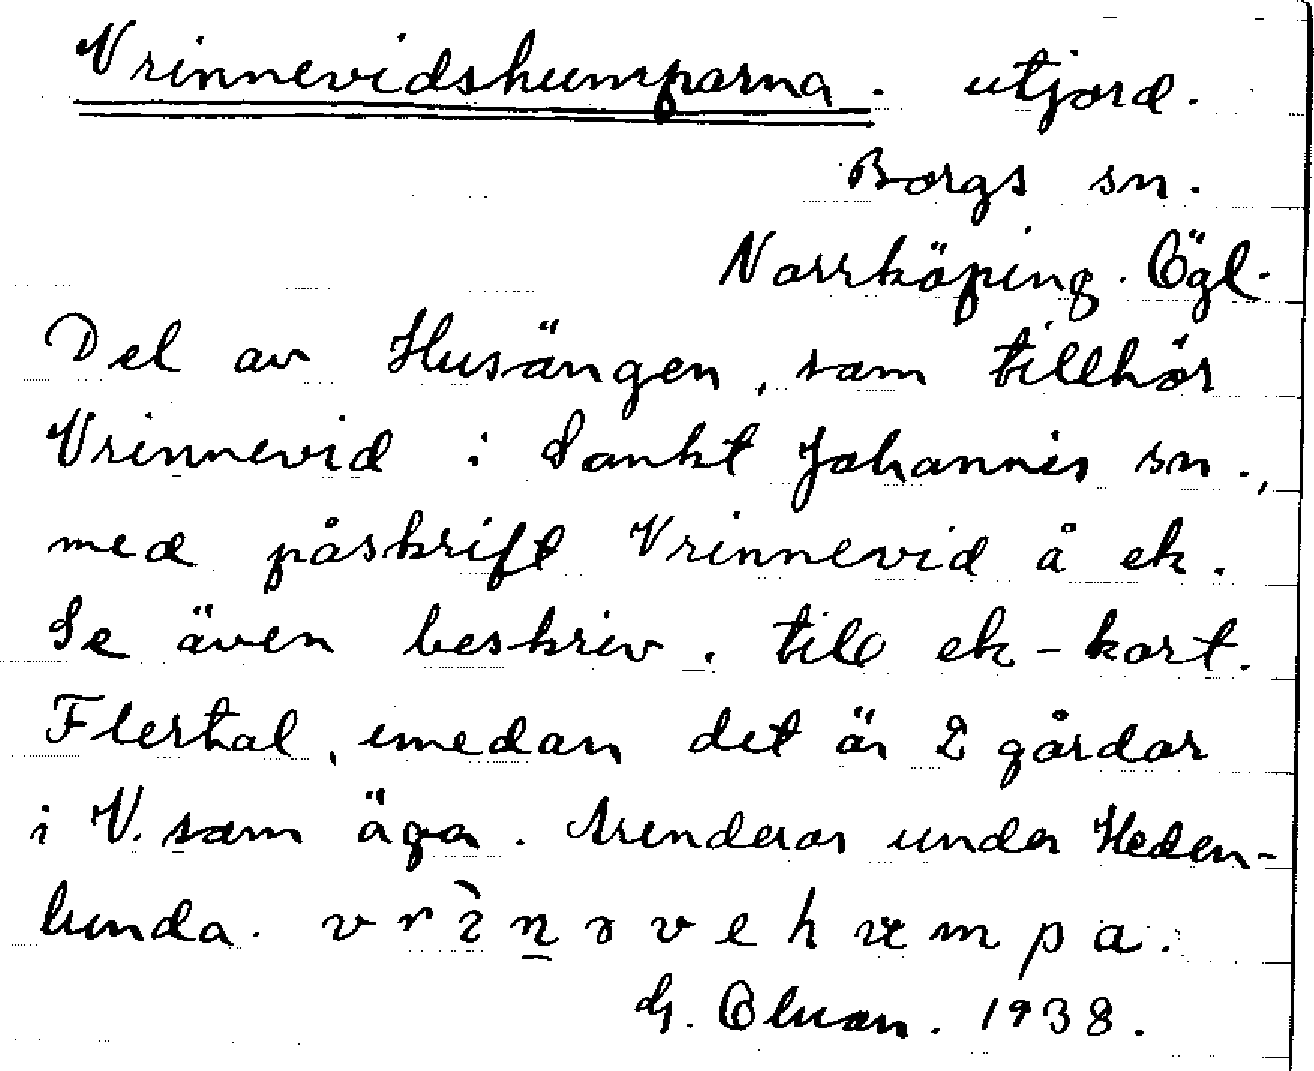 Vrinnevidshumparna. utjord.
Borgs sn.
Norrköping. Ögl.
Del av Husängen, som tillhör
Vrinnevid i Sankt Johannis sn.,
med påskrift Vrinnevid å ek.
Se även beskriv. till ek-kart.
Flertal, emedan det är 2 gårdar
i V. som äga. Arenderas under Heden-
lunda.
G. 1938.